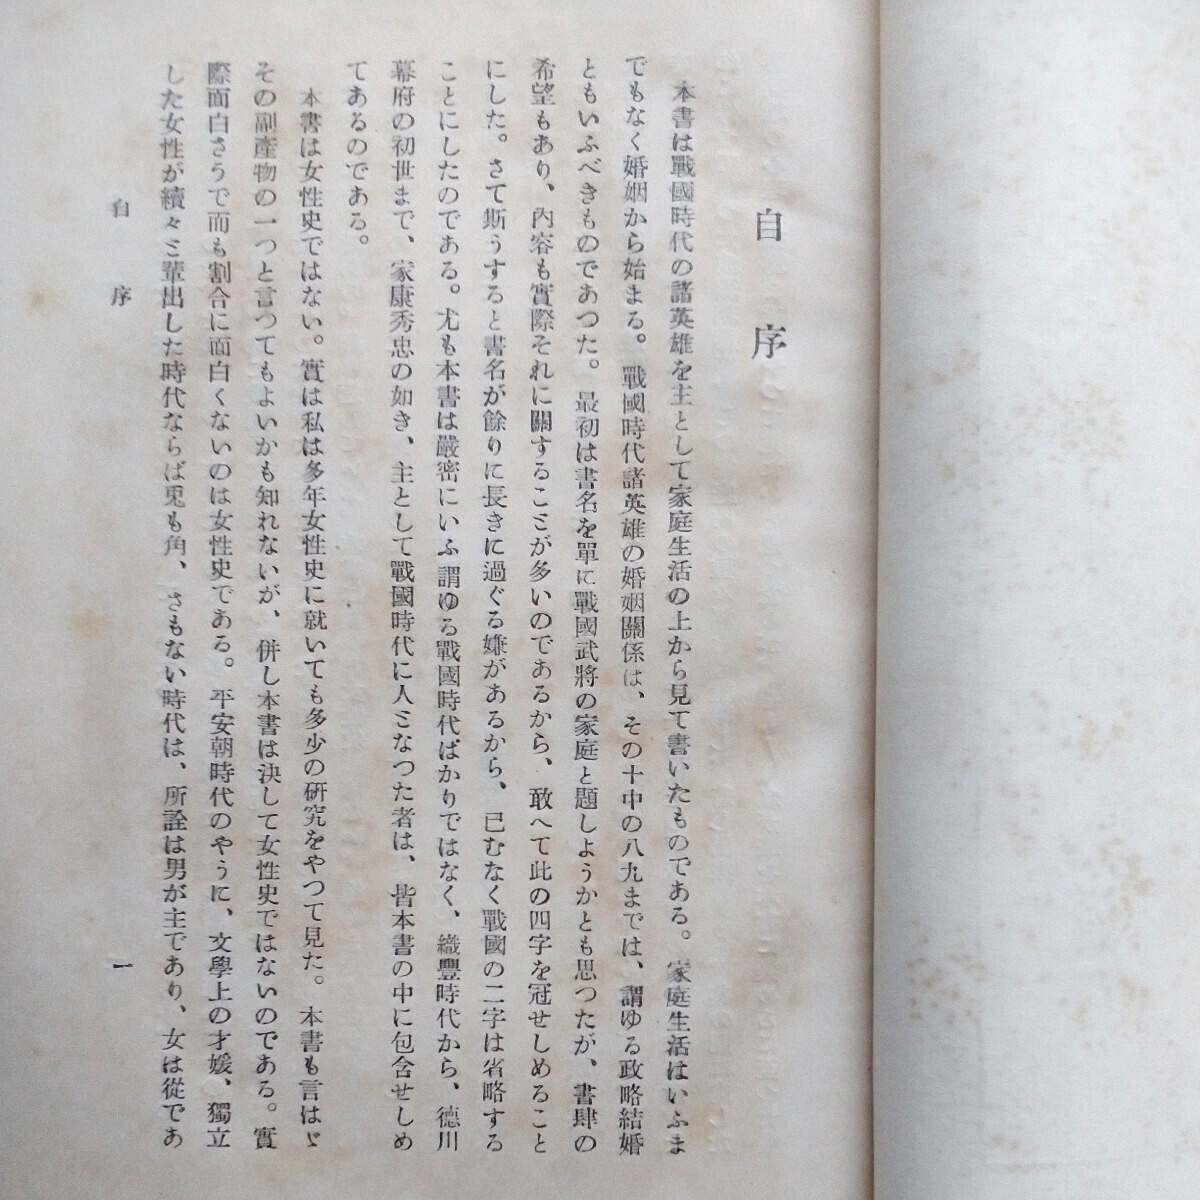 自序
本書は戰國時代の諸英雄を主として家庭生活の上から見て書いたものである。家庭生活はいふま
でもなく婚姻から始まる。戰國時代諸英雄の婚姻關係は、その十中の八九までは、謂ゆる政略結婚
ともいふべきものであつた。最初は書名を單に戰國武將の家庭と題しようかとも思つたが、書肆の
希望もあり、內容も實際それに關するこミが多いのであるから、敢へて此の四字を冠せしめること
にした。さて斯うすると書名が餘りに長きに過ぐる嫌があるから、已むなく戰國の二字は省略する
ことにしたのである。尤も本書は嚴密にいふ謂ゆる戰國時代ばかりではなく、織豐時代から、德川
幕府の初世まで、家康秀忠の如き、主として戰國時代に人ミなつた者は、皆本書の中に包含せしめ
てあるのである。
本書は女性史ではない。實は私は多年女性史に就いても多少の研究をやつて見た。本書も言はゞ
その副產物の一つと言つてもよいかも知れないが、併し本書は決して女性史ではないのである。實
際面白さうで而も割合に面白くないのは女性史である。平安朝時代のやうに、文學上の才媛、獨立
した女性が續々ミ輩出した時代ならば兎も角、さもない時代は、所詮は男が主であり、女は從であ
自序
一